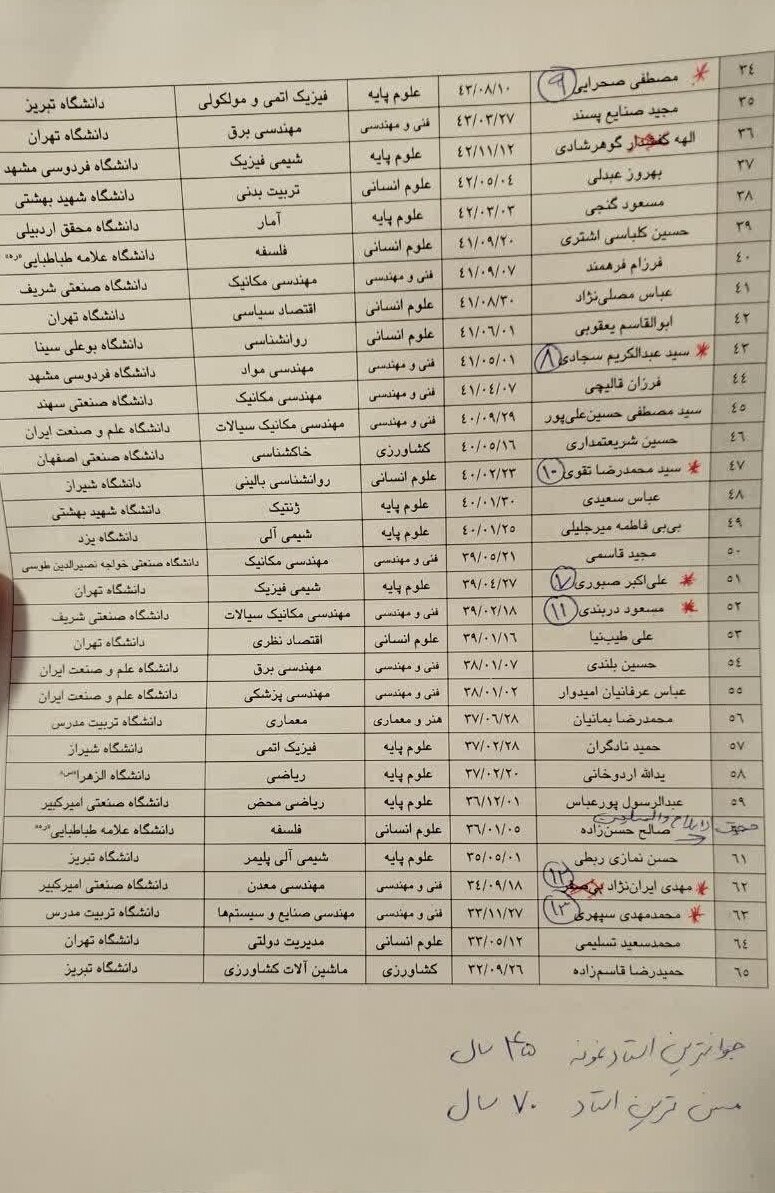 ٣٤ * مصطفی صحرایی ٩ ٤٣/٠٨/١٠ علوم پایه فیزیک اتمی و مولکولی دانشگاه تبریز
٣٥ مجید صنایع پسند ٤٣/٠٣/٢٧ فنی و مهندسی مهندسی برق دانشگاه تهران
٣٦ الهه گوهرشادی ٤٢/١١/١٢ علوم پایه شیمی فیزیک دانشگاه فردوسی مشهد
٣٧ بهروز عبدلی ٤٢/٠٥/٠٤ علوم انسانی تربیت بدنی دانشگاه شهید بهشتی
٣٨ مسعود گنجی ٤٢/٠٣/٠٣ علوم پایه آمار دانشگاه محقق اردبیلی
٣٩ حسین کلباسی اشتری ٤١/٠٩/٢٠ علوم انسانی فلسفه دانشگاه علامه طباطبایی«ره»
٤٠ فرزام فرهمند ٤١/٠٩/٠٧ فنی و مهندسی مهندسی مکانیک دانشگاه صنعتی شریف
٤١ عباس مصلی‌نژاد ٤١/٠٨/٣٠ علوم انسانی اقتصاد سیاسی دانشگاه تهران
٤٢ ابوالقاسم یعقوبی ٤١/٠٦/٠١ علوم انسانی روانشناسی دانشگاه بوعلی سینا
٤٣ * سید عبدالکریم سجادی ٨ ٤١/٠٥/٠١ فنی و مهندسی مهندسی مواد دانشگاه فردوسی مشهد
٤٤ فرزان قالیچی ٤١/٠٤/٠٧ فنی و مهندسی مهندسی مکانیک دانشگاه صنعتی سهند
٤٥ سید مصطفی حسین‌علی‌پور ٤٠/٠٩/٢٩ فنی و مهندسی مهندسی مکانیک سیالات دانشگاه علم و صنعت ایران
٤٦ حسین شریعتمداری ٤٠/٠٥/١٦ کشاورزی خاکشناسی دانشگاه صنعتی اصفهان
٤٧ * سید محمدرضا تقوی ١٠ ٤٠/٠٢/٢٣ علوم انسانی روانشناسی بالینی دانشگاه شیراز
٤٨ عباس سعیدی ٤٠/٠١/٣٠ علوم پایه ژنتیک دانشگاه شهید بهشتی
٤٩ بی‌بی فاطمه میرجلیلی ٤٠/٠١/٢٥ علوم پایه شیمی آلی دانشگاه یزد
٥٠ مجید قاسمی ٣٩/٠٥/٢١ فنی و مهندسی مهندسی مکانیک دانشگاه صنعتی خواجه نصیرالدین طوسی
٥١ * علی‌اکبر صبوری ٧ ٣٩/٠٤/٢٧ علوم پایه شیمی فیزیک دانشگاه تهران
٥٢ * مسعود دربندی ١١ ٣٩/٠٢/١٨ فنی و مهندسی مهندسی مکانیک سیالات دانشگاه صنعتی شریف
٥٣ علی طیب‌نیا ٣٩/٠١/١٦ علوم انسانی اقتصاد نظری دانشگاه تهران
٥٤ حسین بلندی ٣٨/٠١/٠٧ فنی و مهندسی مهندسی برق دانشگاه علم و صنعت ایران
٥٥ عباس عرفانیان امیدوار ٣٨/٠١/٠٢ فنی و مهندسی مهندسی پزشکی دانشگاه علم و صنعت ایران
٥٦ محمدرضا بمانیان ٣٧/٠٦/٢٨ هنر و معماری معماری دانشگاه تربیت مدرس
٥٧ حمید نادگران ٣٧/٠٢/٢٨ علوم پایه فیزیک اتمی دانشگاه شیراز
٥٨ یدالله اردوخانی ٣٧/٠٢/٢٠ علوم پایه ریاضی دانشگاه الزهرا«س»
٥٩ عبدالرسول پورعباس ٣٦/١٢/٠١ علوم پایه ریاضی محض دانشگاه صنعتی امیرکبیر
صالح حسن‌زاده ٣٦/٠١/٠٥ علوم انسانی فلسفه دانشگاه علامه طباطبایی«ره»
٦١ حسن نمازی ربطی ٣٥/٠٥/٠١ علوم پایه شیمی آلی پلیمر دانشگاه تبریز
٦٢ * مهدی ایران‌نژاد ١٢ ٣٤/٠٩/١٨ فنی و مهندسی مهندسی معدن دانشگاه صنعتی امیرکبیر
٦٣ * محمدمهدی سپهری ١٣ ٣٣/١١/٢٧ فنی و مهندسی مهندسی صنایع و سیستم‌ها دانشگاه تربیت مدرس
٦٤ محمدسعید تسلیمی ٣٣/٠٥/١٢ علوم انسانی مدیریت دولتی دانشگاه تهران
٦٥ حمیدرضا قاسم‌زاده ٣٢/٠٩/٢٦ کشاورزی ماشین آلات کشاورزی دانشگاه تبریز
جوانترین استاد نمونه ۴۵ سال
مسن ترین استاد ۷۰ سال